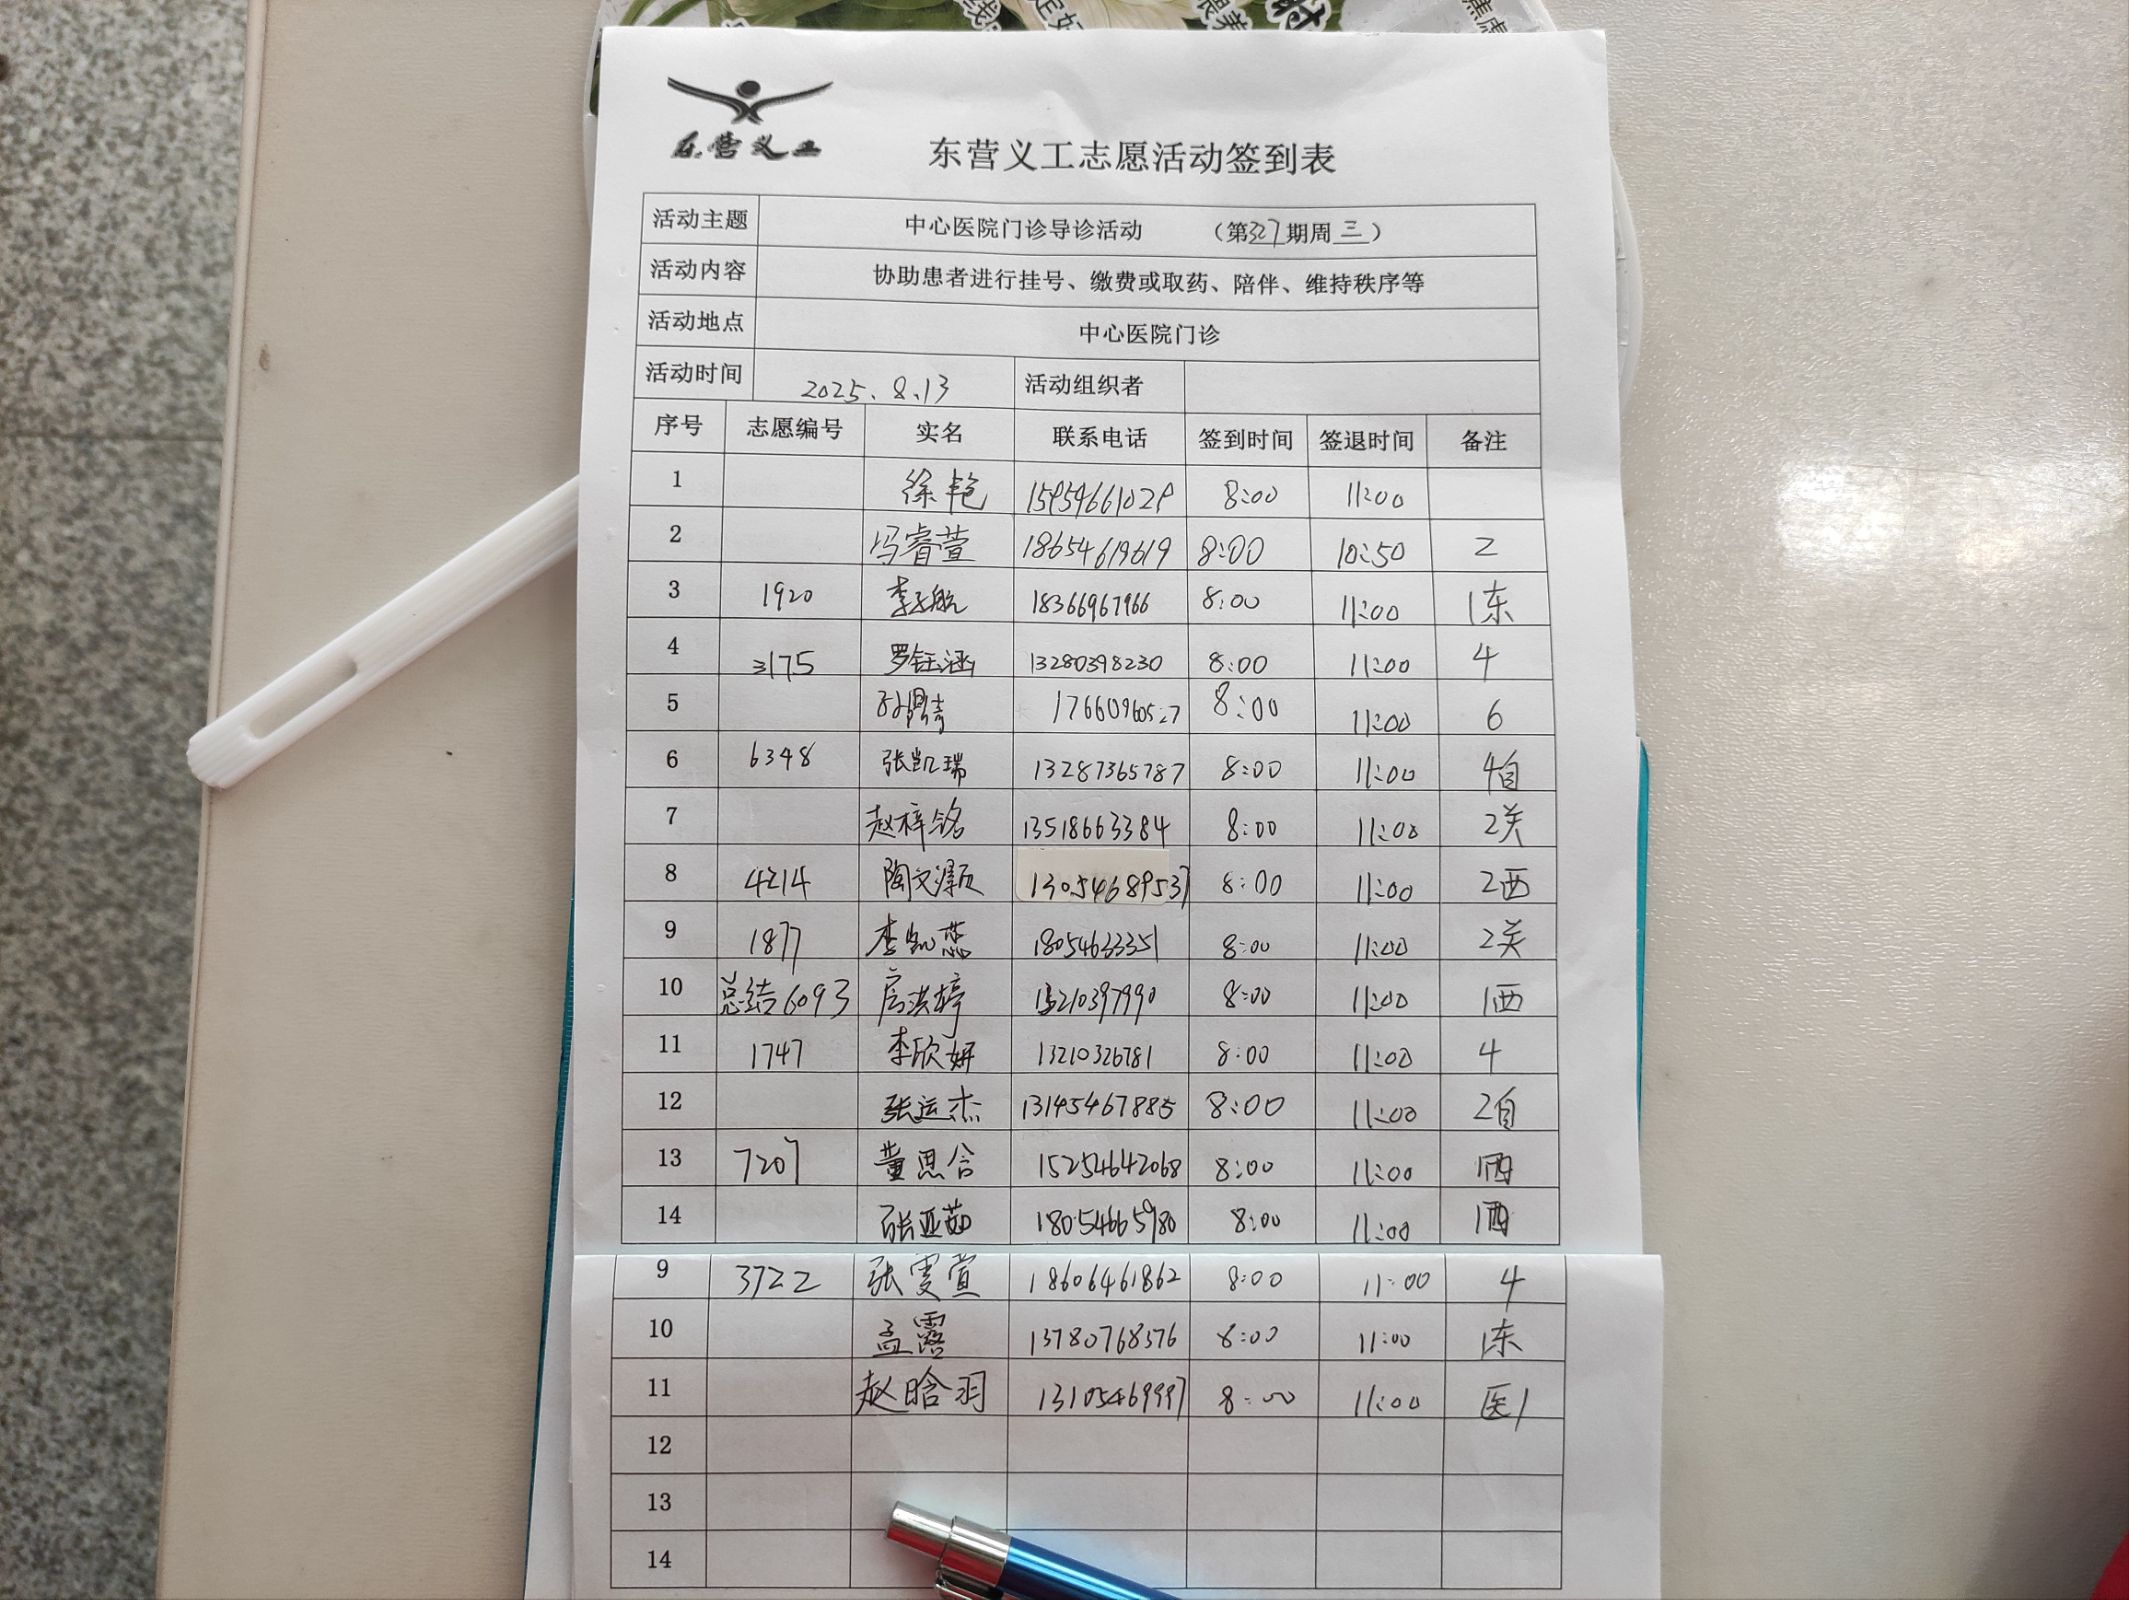 东营义工
东营义工志愿活动签到表
活动主题 中心医院门诊导诊活动 （第327期周三）
活动内容 协助患者进行挂号、缴费或取药、陪伴、维持秩序等
活动地点 中心医院门诊
活动时间 2025.8.13 活动组织者
序号 志愿编号 实名 联系电话 签到时间 签退时间 备注
1 徐艳 15954661029 8:00 11:00
2 冯睿萱 18654619619 8:00 10:50 2
3 1920 李子航 18366967966 8:00 11:00 1东
4 3175 罗钰涵 13280398230 8:00 11:00 4
5 8:00 11:00 6
6 6348 张凯瑞 13287365787 8:00 11:00 4自
7 赵梓铭 13518663384 8:00 11:00 2关
8 4214 陶文灏 13054689537 8:00 11:00 2西
9 1877 李凯蕊 18054633351 8:00 11:00 2关
10 总结6093 房洪婷 13210397990 8:00 11:00 1西
11 1747 李欣妍 13210326781 8:00 11:00 4
12 张运杰 13145467885 8:00 11:00 2自
13 7207 董思含 15254642068 8:00 11:00 1西
14 张亚茹 18054665980 8:00 11:00 1西
9 3722 张雯萱 18606461862 8:00 11:00 4
10 孟露 13780768376 8:00 11:00 1东
11 赵晗羽 13105469997 8:00 11:00 医1
12
13
14